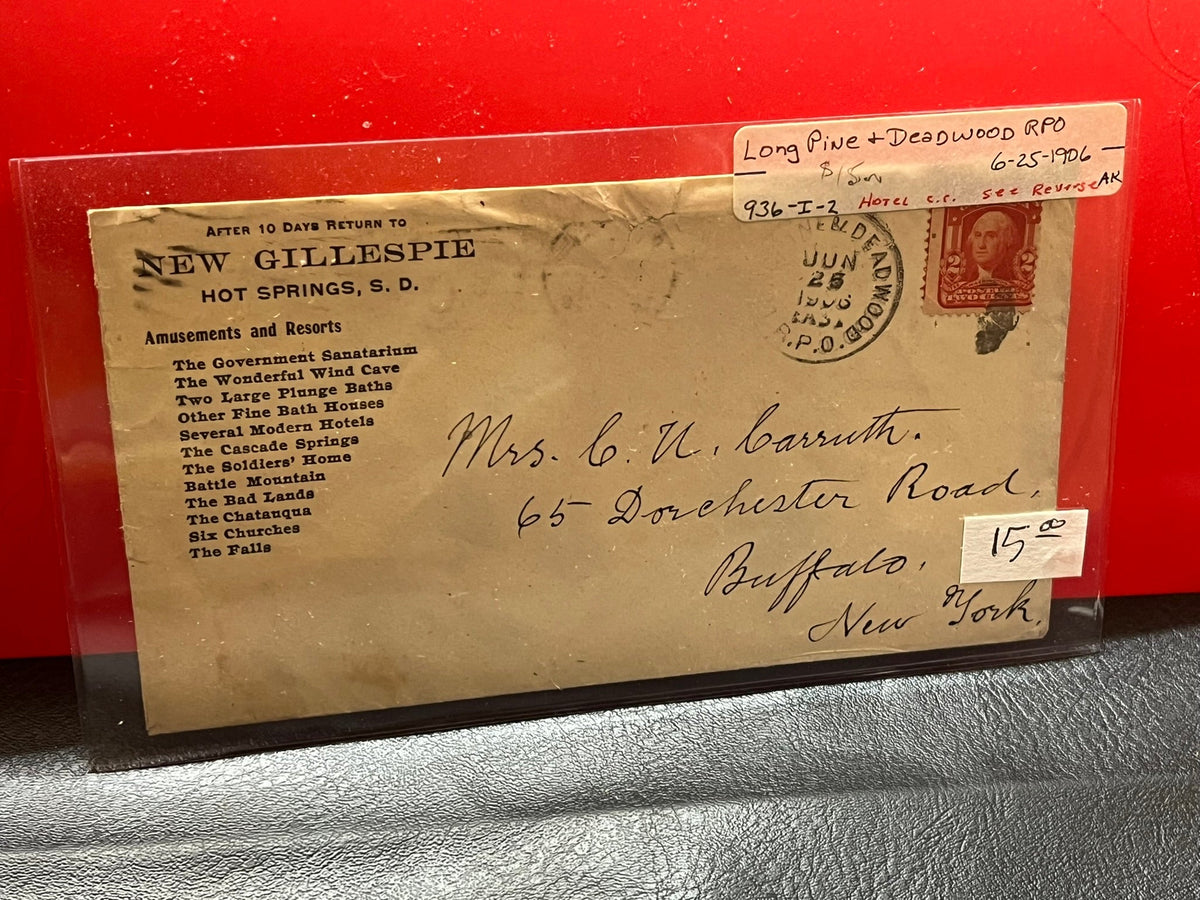 Long Pine + Deadwood RPO
6-25-1906
$15
936-I-2 Hotel c.c. see Reverse AK
After 10 Days Return to
NEW GILLESPIE
HOT SPRINGS, S. D.
Amusements and Resorts
The Government Sanatarium
The Wonderful Wind Cave
Two Large Plunge Baths
Other Fine Bath Houses
Several Modern Hotels
The Cascade Springs
The Soldiers' Home
Battle Mountain
The Bad Lands
The Chatauqua
Six Churches
The Falls
DEADWOOD
R.P.O.
JUN
25
1906
EAST
2 2
POSTAGE
TWO CENTS
Mrs. C. N. Carruth.
65 Dorchester Road,
Buffalo,
New York.
15 00